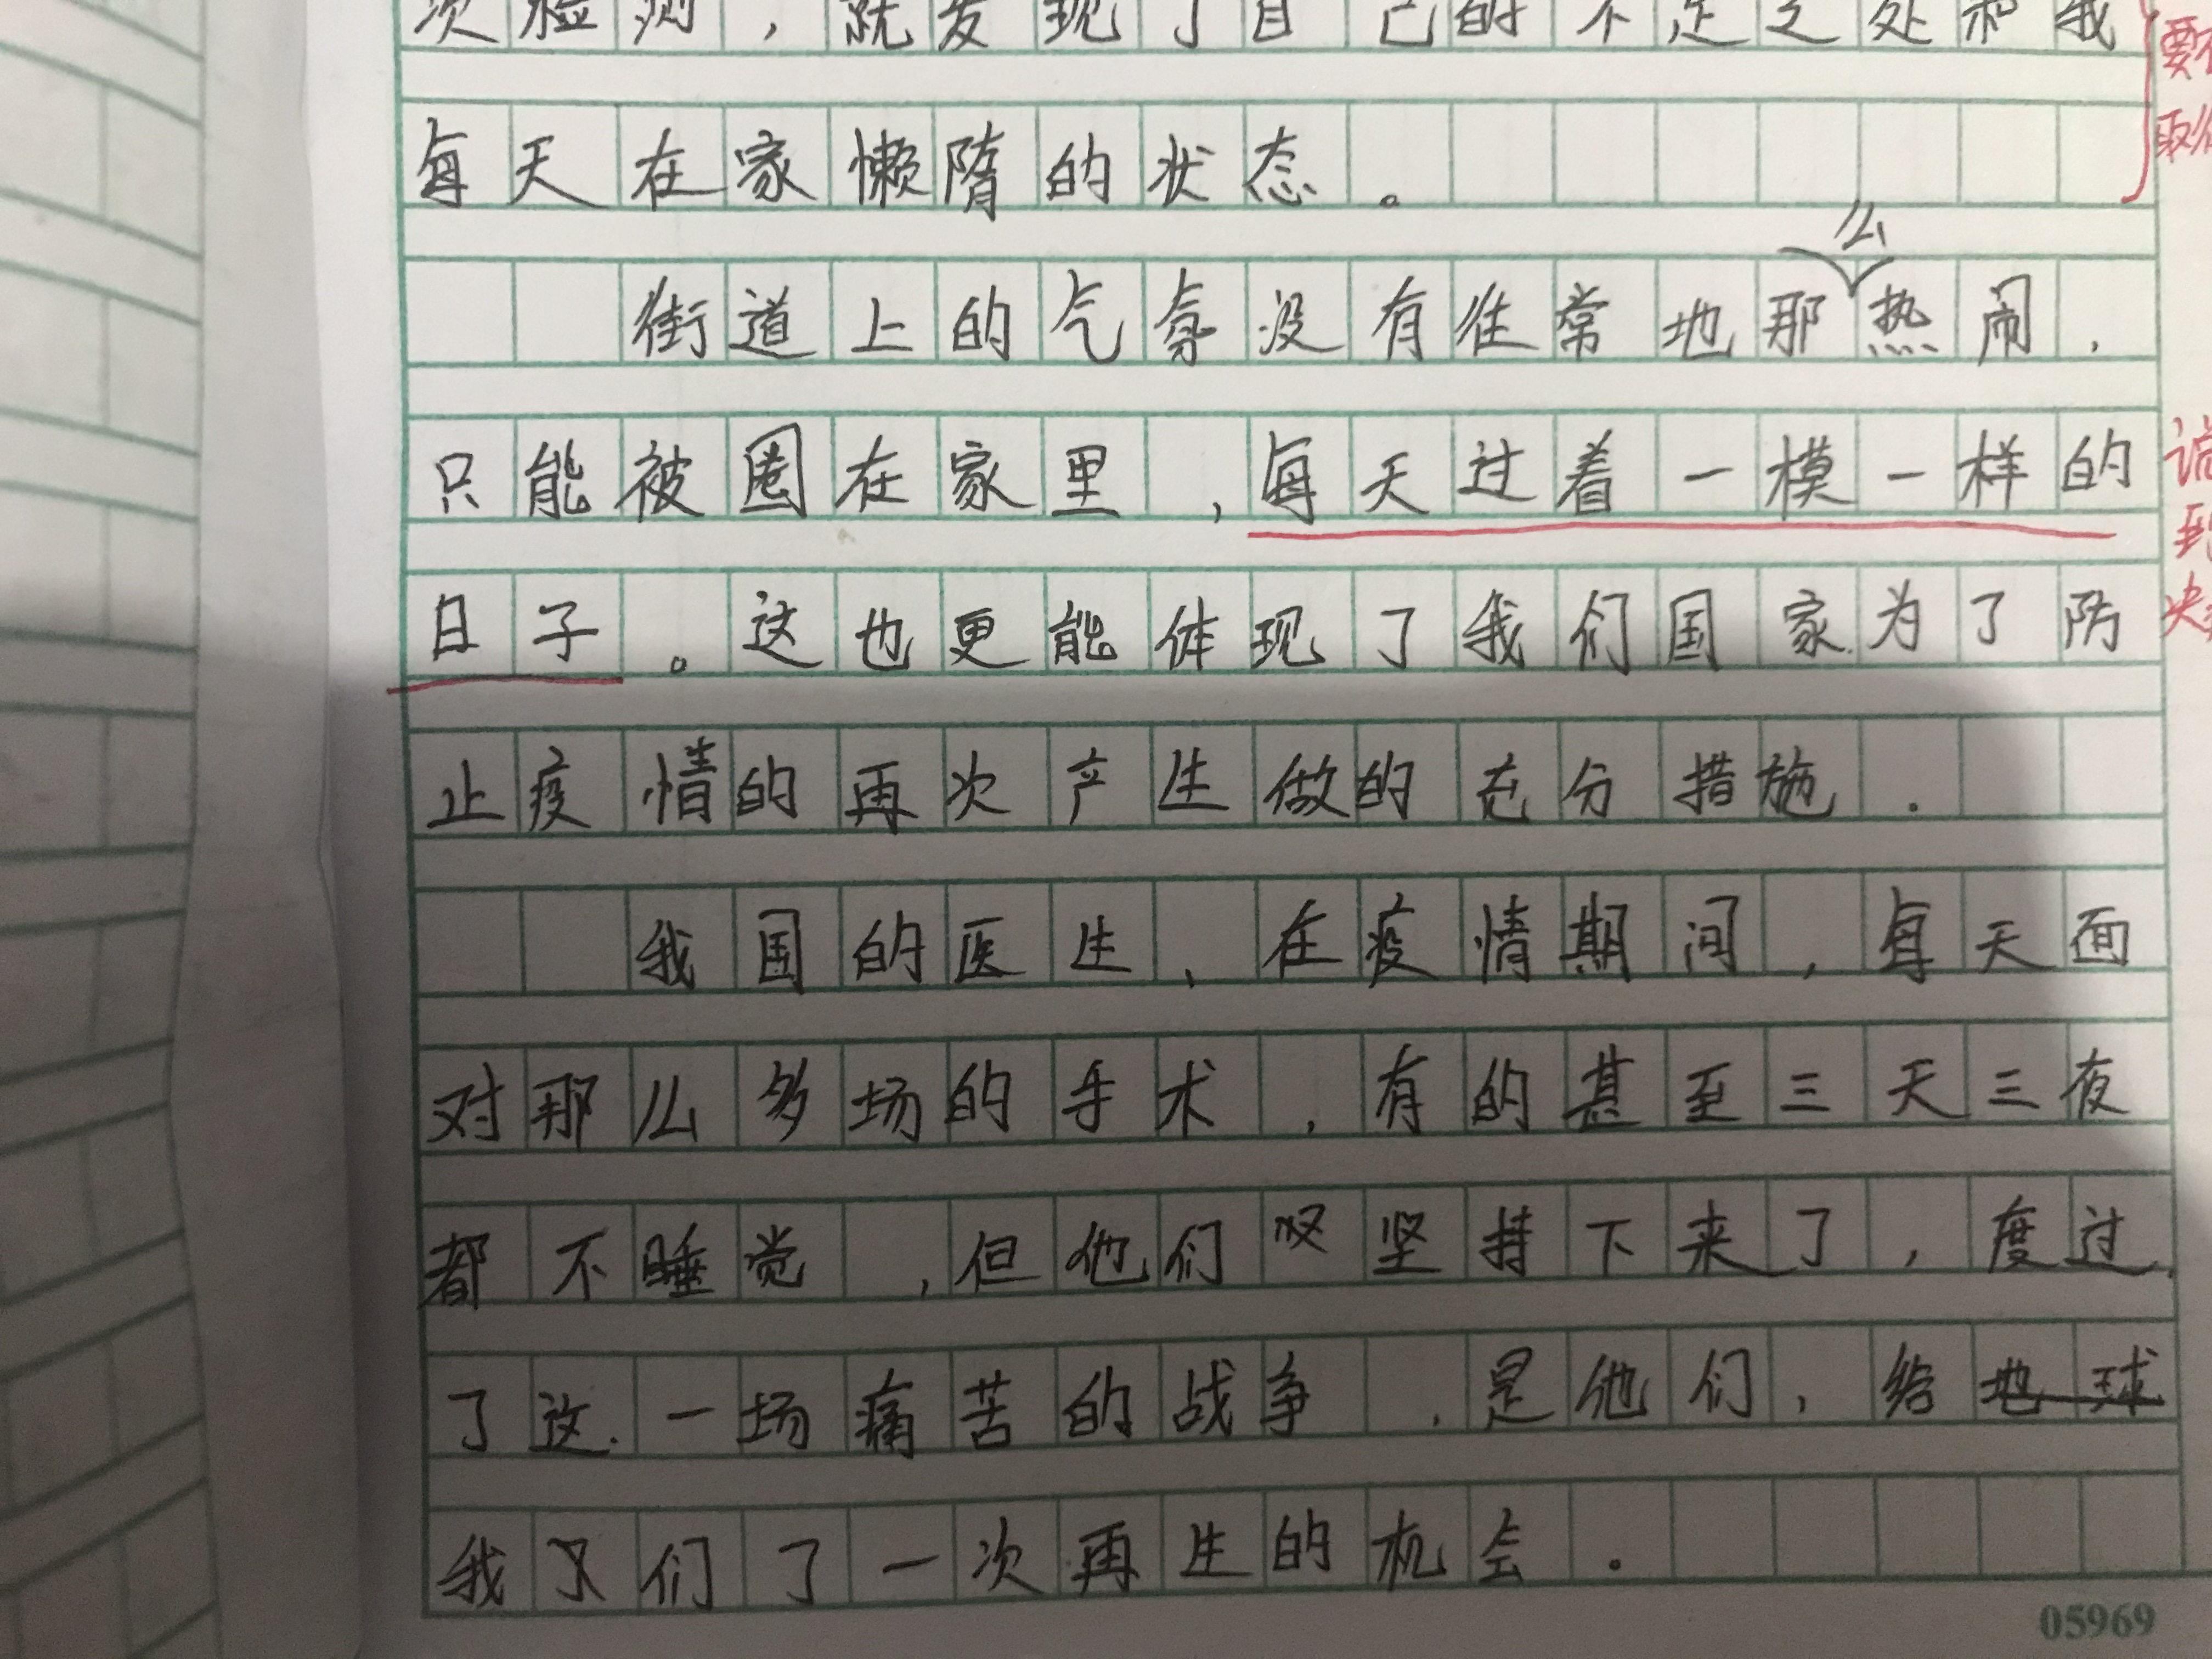 次检测，就发现了自己的不足之处和我
每天在家懒隋的状态。
么
街道上的气氛没有往常地那热闹，
只能被圈在家里，每天过着一模一样的
日子。这也更能体现了我们国家为了防
止疫情的再次产生做的充分措施．
我国的医生、在疫情期间，每天面
对那么多场的手术，有的甚至三天三夜
都不睡觉，但他们坚持下来了，度过
了这一场痛苦的战争，是他们，给地球
我们了一次再生的机会．
要
取
到
决
05969